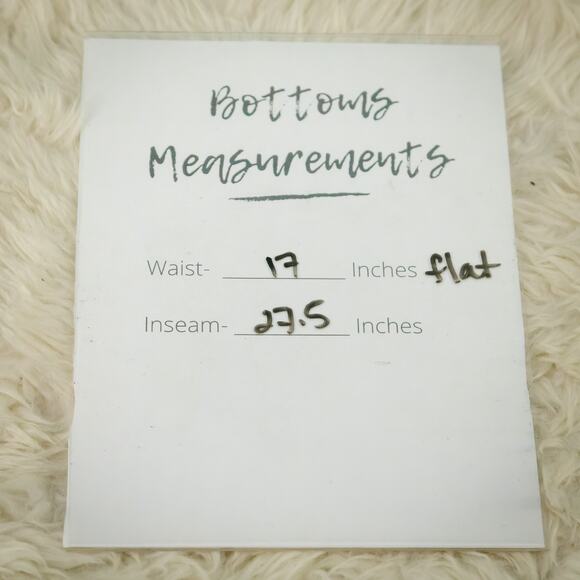 Bottoms
Measurements
Waist- 17 Inches flat
Inseam- 27.5 Inches